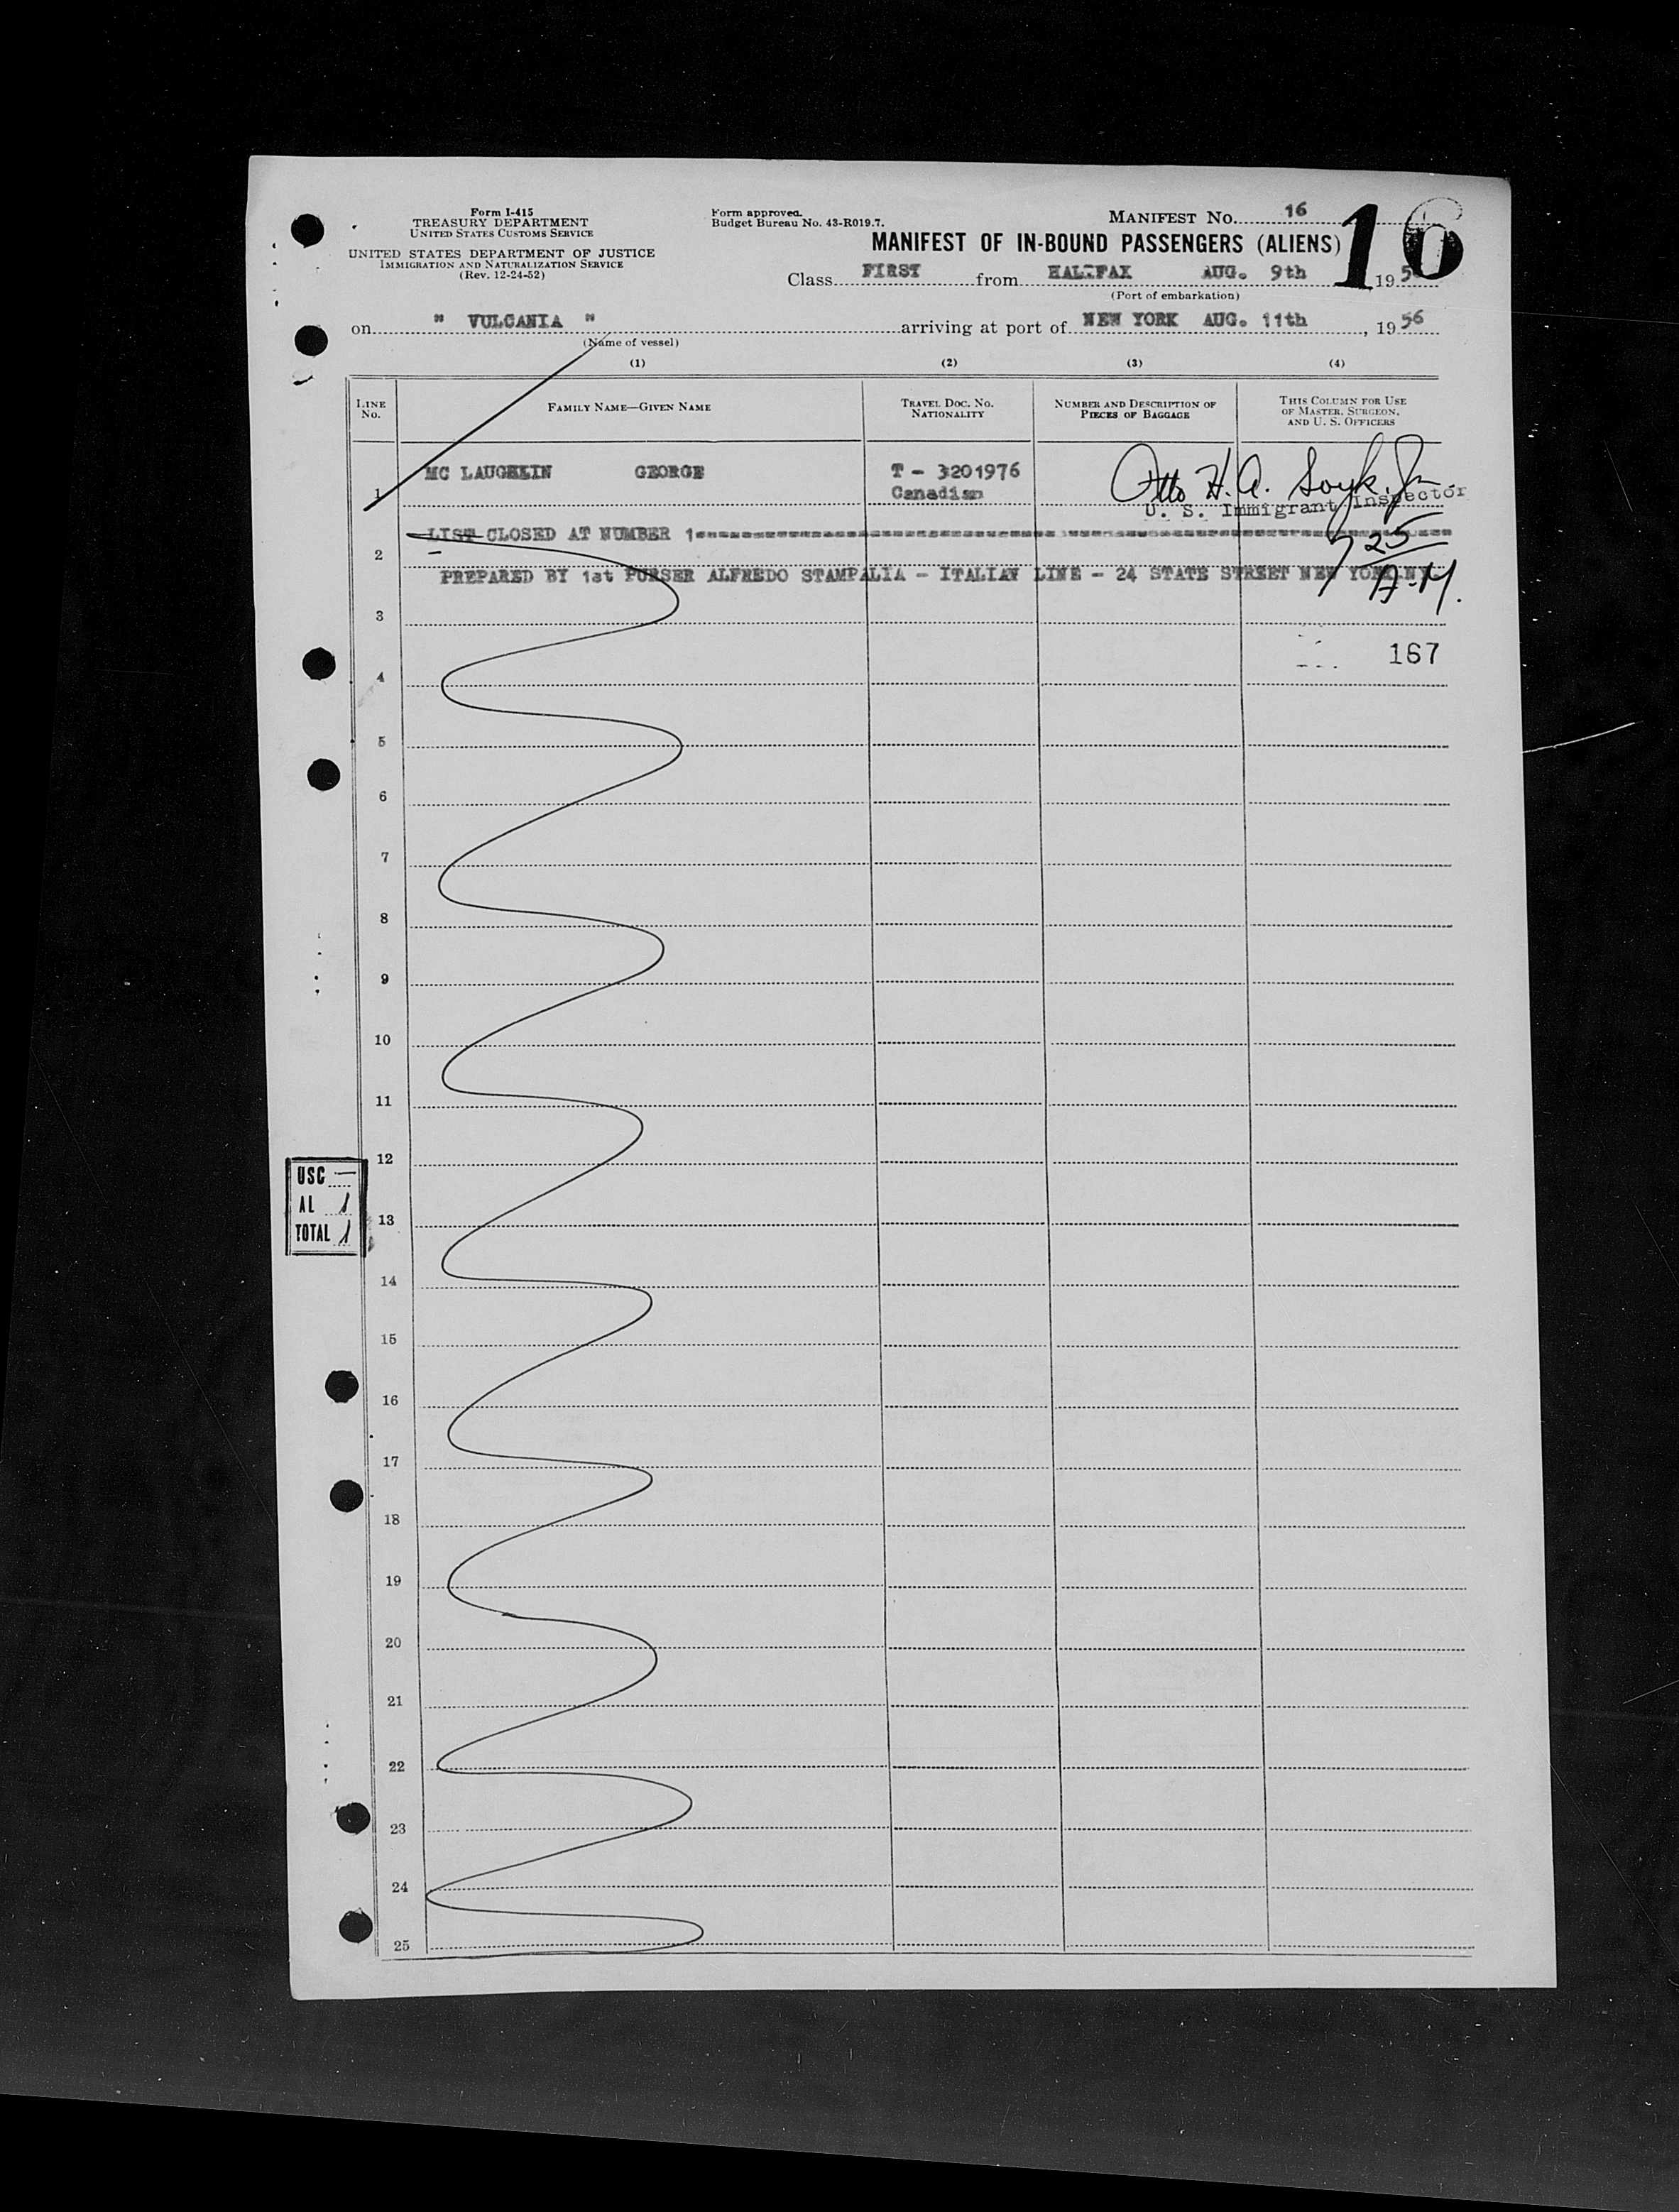 Form I-415
TREASURY DEPARTMENT
UNITED STATES CUSTOMS SERVICE
UNITED STATES DEPARTMENT OF JUSTICE
IMMIGRATION AND NATURALIZATION SERVICE
(Rev. 12-24-52)
Form approved.
Budget Bureau No. 43-R019.7.
MANIFEST No. 16
16
MANIFEST OF IN-BOUND PASSENGERS (ALIENS)
Class FIRST from HALIFAX AUG. 9th 195
(Port of embarkation)
on " VULCANIA " arriving at port of NEW YORK AUG. 11th, 1956
(Name of vessel)
(1) (2) (3) (4)
LINE No. FAMILY NAME—GIVEN NAME TRAVEL DOC. No. NATIONALITY NUMBER AND DESCRIPTION OF PIECES OF BAGGAGE THIS COLUMN FOR USE OF MASTER, SURGEON, AND U. S. OFFICERS
1 MC LAUGHLIN GEORGE T - 3201976
Canadian
Otto H. A. Soyk. Jr.
U. S. Immigrant Inspector
LIST CLOSED AT NUMBER 1
7 25
A.M.
2
PREPARED BY 1st PURSER ALFREDO STAMPALIA - ITALIAN LINE - 24 STATE STREET NEW YORK.NY.
3
167
4
5
6
7
8
9
10
11
12
USC —
AL 1
TOTAL 1
13
14
15
16
17
18
19
20
21
22
23
24
25